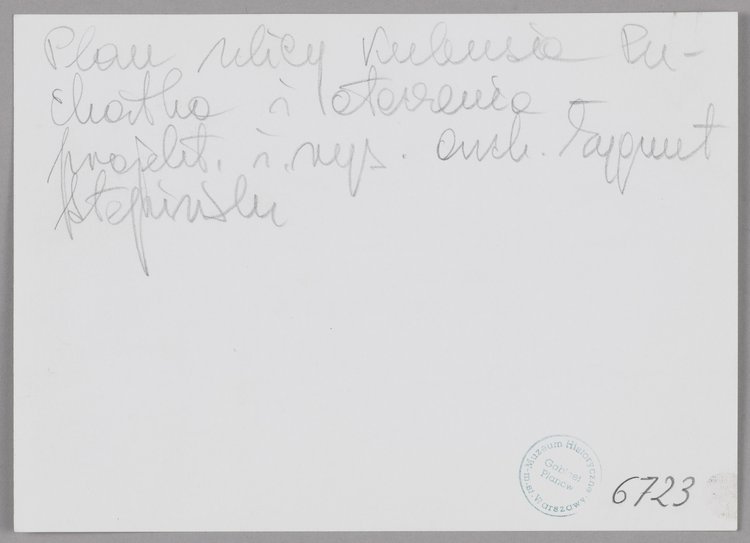 Plan ulicy Kubusia Pu-
chatka i otoczenia
projekt. i. rys. arch. Zygmunt
Stępiński
Muzeum Historyczne
m. st. Warszawy
Gabinet
Planów
6723